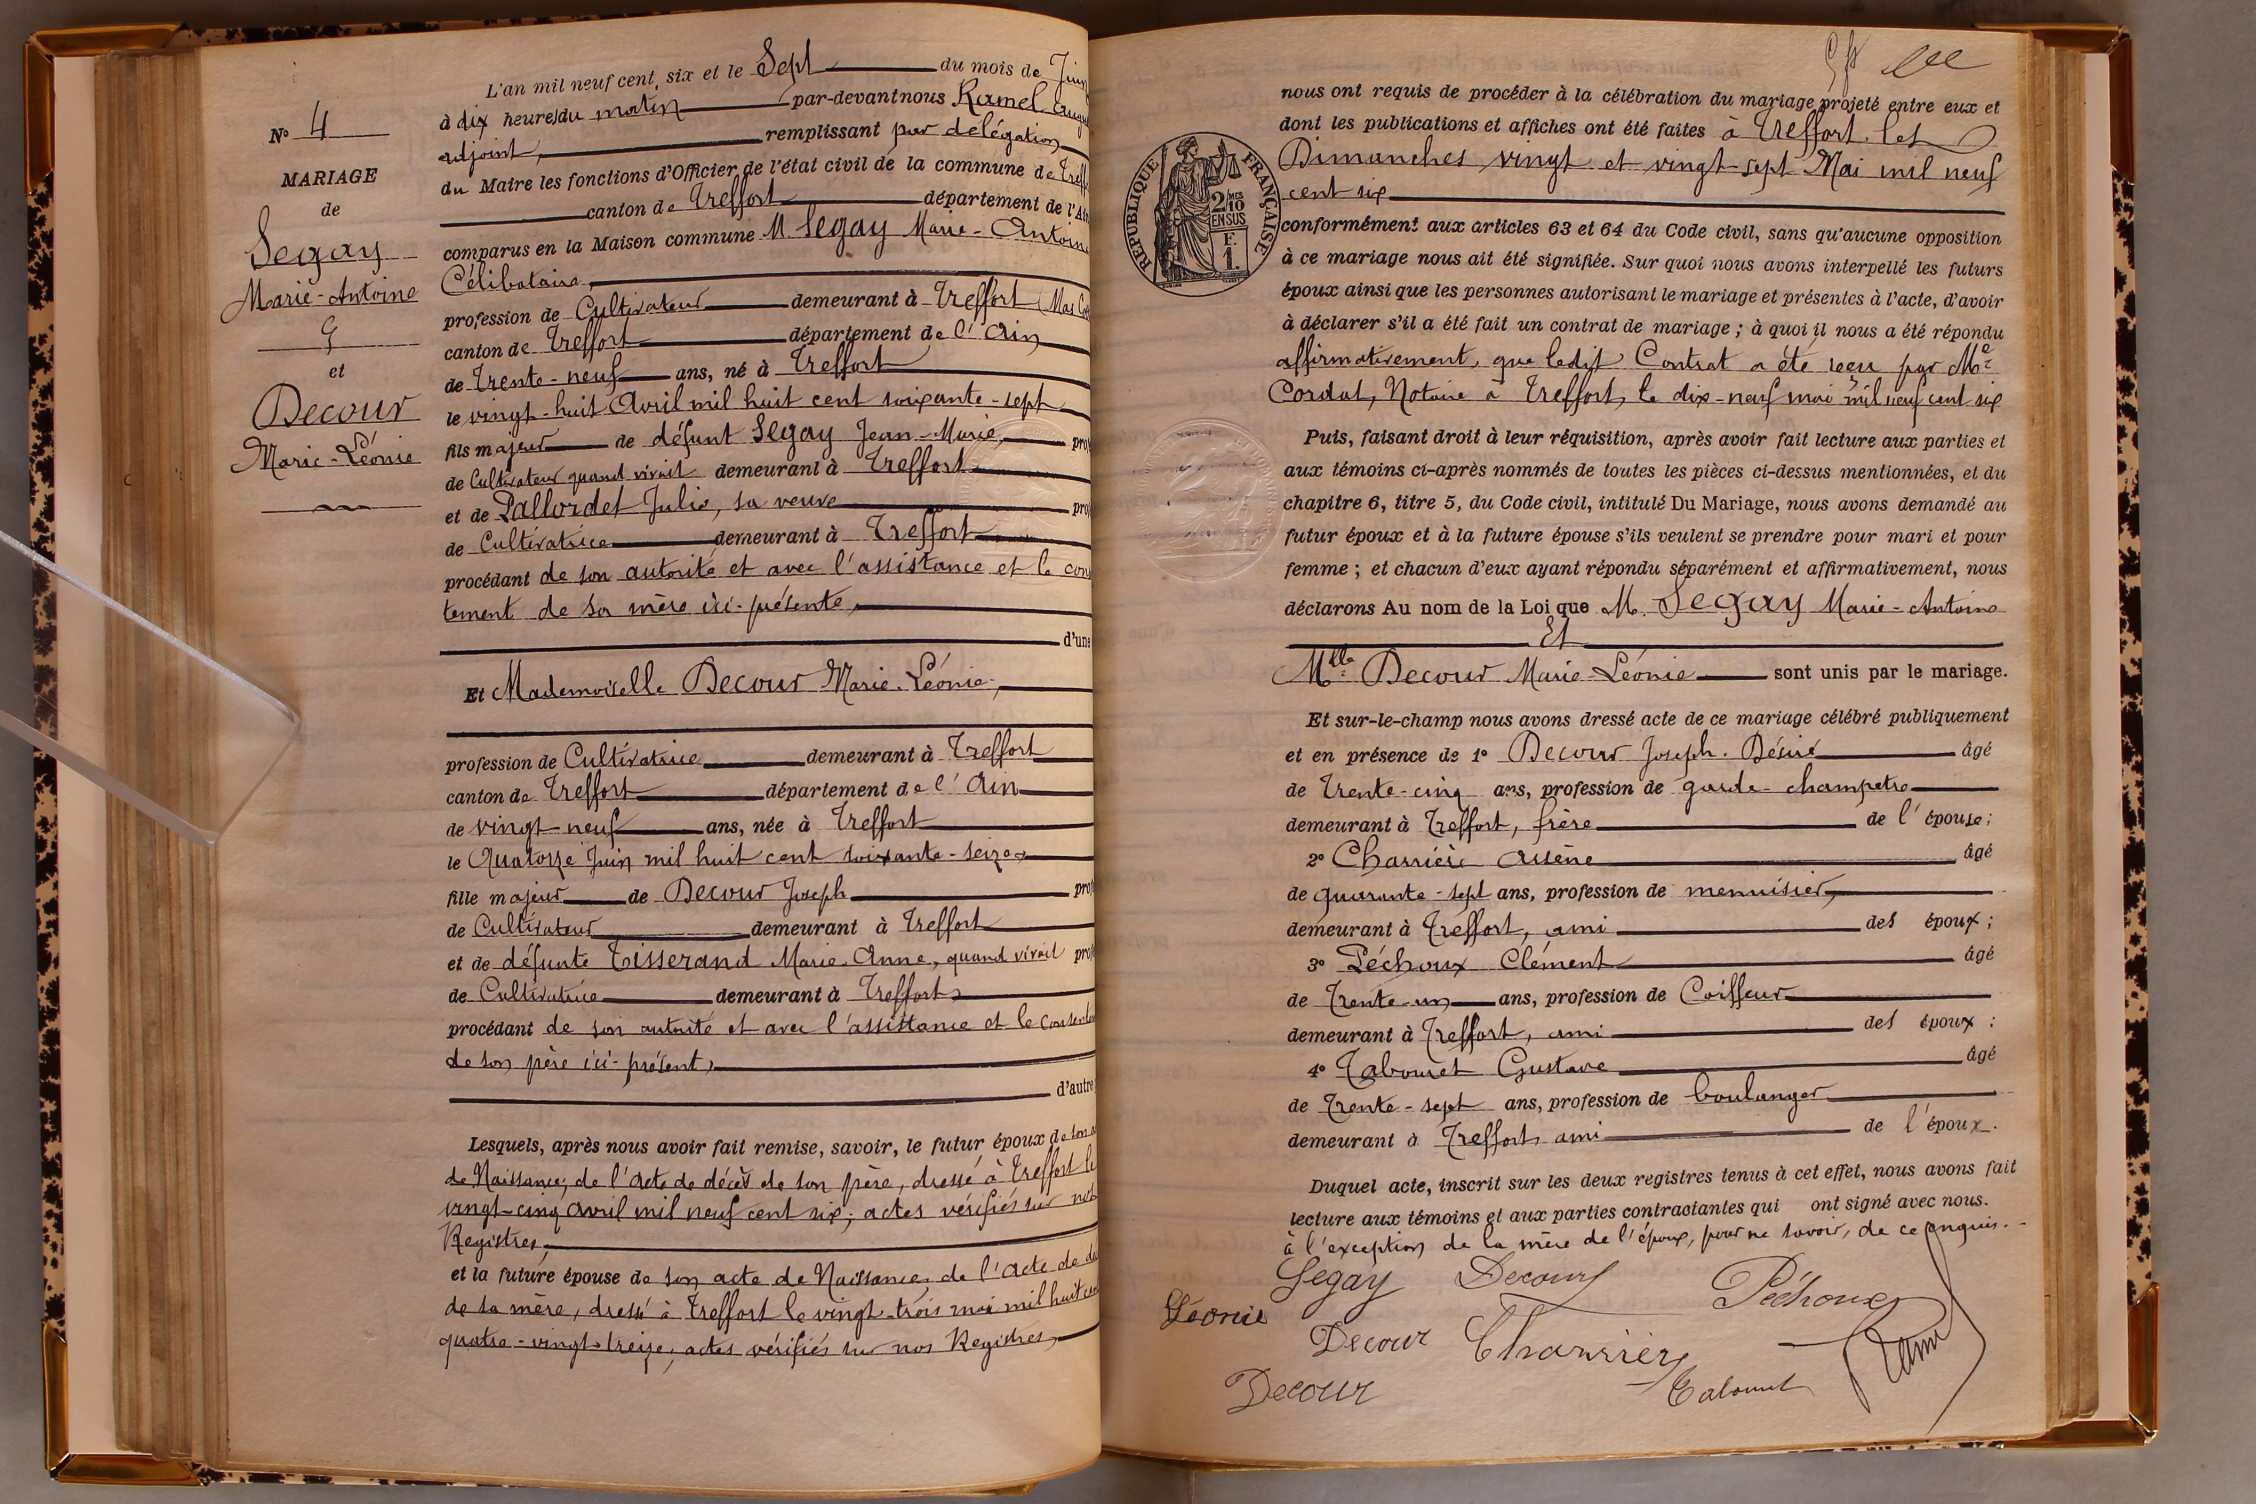 N° 4
MARIAGE
de
Segay
Marie-Antoine
et
Decour
Marie-Léonie
L'an mil neuf cent six et le Sept du mois de Juin
à dix heures du matin par-devant nous Ramel Augus
adjoint, remplissant par délégation
du Maire les fonctions d'Officier de l'état civil de la commune de Treff
canton de Treffort département de l'Ain
comparus en la Maison commune M Segay Marie-Antoine
Célibataire,
profession de Cultivateur demeurant à Treffort (Mas
canton de Treffort département de l'Ain
de Trente-neuf ans, né à Treffort
le vingt-huit Avril mil huit cent soixante-sept
fils majeur de défunt Segay Jean-Marie, prof
de Cultivateur quand vivait demeurant à Treffort
et de Pallordet Julie, sa veuve prof
de Cultivatrice demeurant à Treffort
procédant de son autorité et avec l'assistance et le con
tement de sa mère ici-présente,
d'une
Et Mademoiselle Decour Marie-Léonie,
profession de Cultivatrice demeurant à Treffort
canton de Treffort département de l'Ain
de vingt-neuf ans, née à Treffort
le Quatorze Juin mil huit cent soixante-seize
fille majeur de Decour Joseph prof
de Cultivateur demeurant à Treffort
et de défunte Tisserand Marie-Anne, quand vivait prof
de Cultivatrice demeurant à Treffort,
procédant de son autorité et avec l'assistance et le consentem
de son père ici-présent,
d'autre
Lesquels, après nous avoir fait remise, savoir, le futur époux de son a
de Naissance, de l'Acte de décès de son père, dressé à Treffort le
vingt-cinq avril mil neuf cent six; actes vérifiés sur nos
Registres,
et la future épouse de son acte de Naissance, de l'Acte de dé
de sa mère, dressé à Treffort le vingt-trois mai mil huit cent
quatre-vingt-treize, actes vérifiés sur nos Registres,
nous ont requis de procéder à la célébration du mariage projeté entre eux et
dont les publications et affiches ont été faites à Treffort les
Dimanches vingt et vingt-sept Mai mil neuf
cent six
RÉPUBLIQUE FRANÇAISE
2/10 EN SUS
F. 1.
conformément aux articles 63 et 64 du Code civil, sans qu'aucune opposition
à ce mariage nous ait été signifiée. Sur quoi nous avons interpellé les futurs
époux ainsi que les personnes autorisant le mariage et présentes à l'acte, d'avoir
à déclarer s'il a été fait un contrat de mariage ; à quoi il nous a été répondu
affirmativement, que ledit Contrat a été reçu par Me
Cordat, Notaire à Treffort, le dix-neuf mai mil neuf cent six
Puis, faisant droit à leur réquisition, après avoir fait lecture aux parties et
aux témoins ci-après nommés de toutes les pièces ci-dessus mentionnées, et du
chapitre 6, titre 5, du Code civil, intitulé Du Mariage, nous avons demandé au
futur époux et à la future épouse s'ils veulent se prendre pour mari et pour
femme ; et chacun d'eux ayant répondu séparément et affirmativement, nous
déclarons Au nom de la Loi que M. Segay Marie-Antoine
Et
Mlle Decour Marie-Léonie sont unis par le mariage.
Et sur-le-champ nous avons dressé acte de ce mariage célébré publiquement
et en présence de 1° Decour Joseph-Désiré âgé
de Trente-cinq ans, profession de garde-champetre
demeurant à Treffort, frère de l'épouse;
2° Charrière Arsène âgé
de quarante-sept ans, profession de menuisier,
demeurant à Treffort, ami des époux;
3° Péchoux Clément âgé
de Trente-un ans, profession de Coiffeur
demeurant à Treffort, ami des époux;
4° Tabouret Gustave âgé
de Trente-sept ans, profession de boulanger
demeurant à Treffort, ami de l'époux.
Duquel acte, inscrit sur les deux registres tenus à cet effet, nous avons fait
lecture aux témoins et aux parties contractantes qui ont signé avec nous.
à l'exception de la mère de l'époux, pour ne savoir, de ce enquis.
Segay Decour Péchoux
Léonie Decour Charrière Ramel
Decour Tabouret